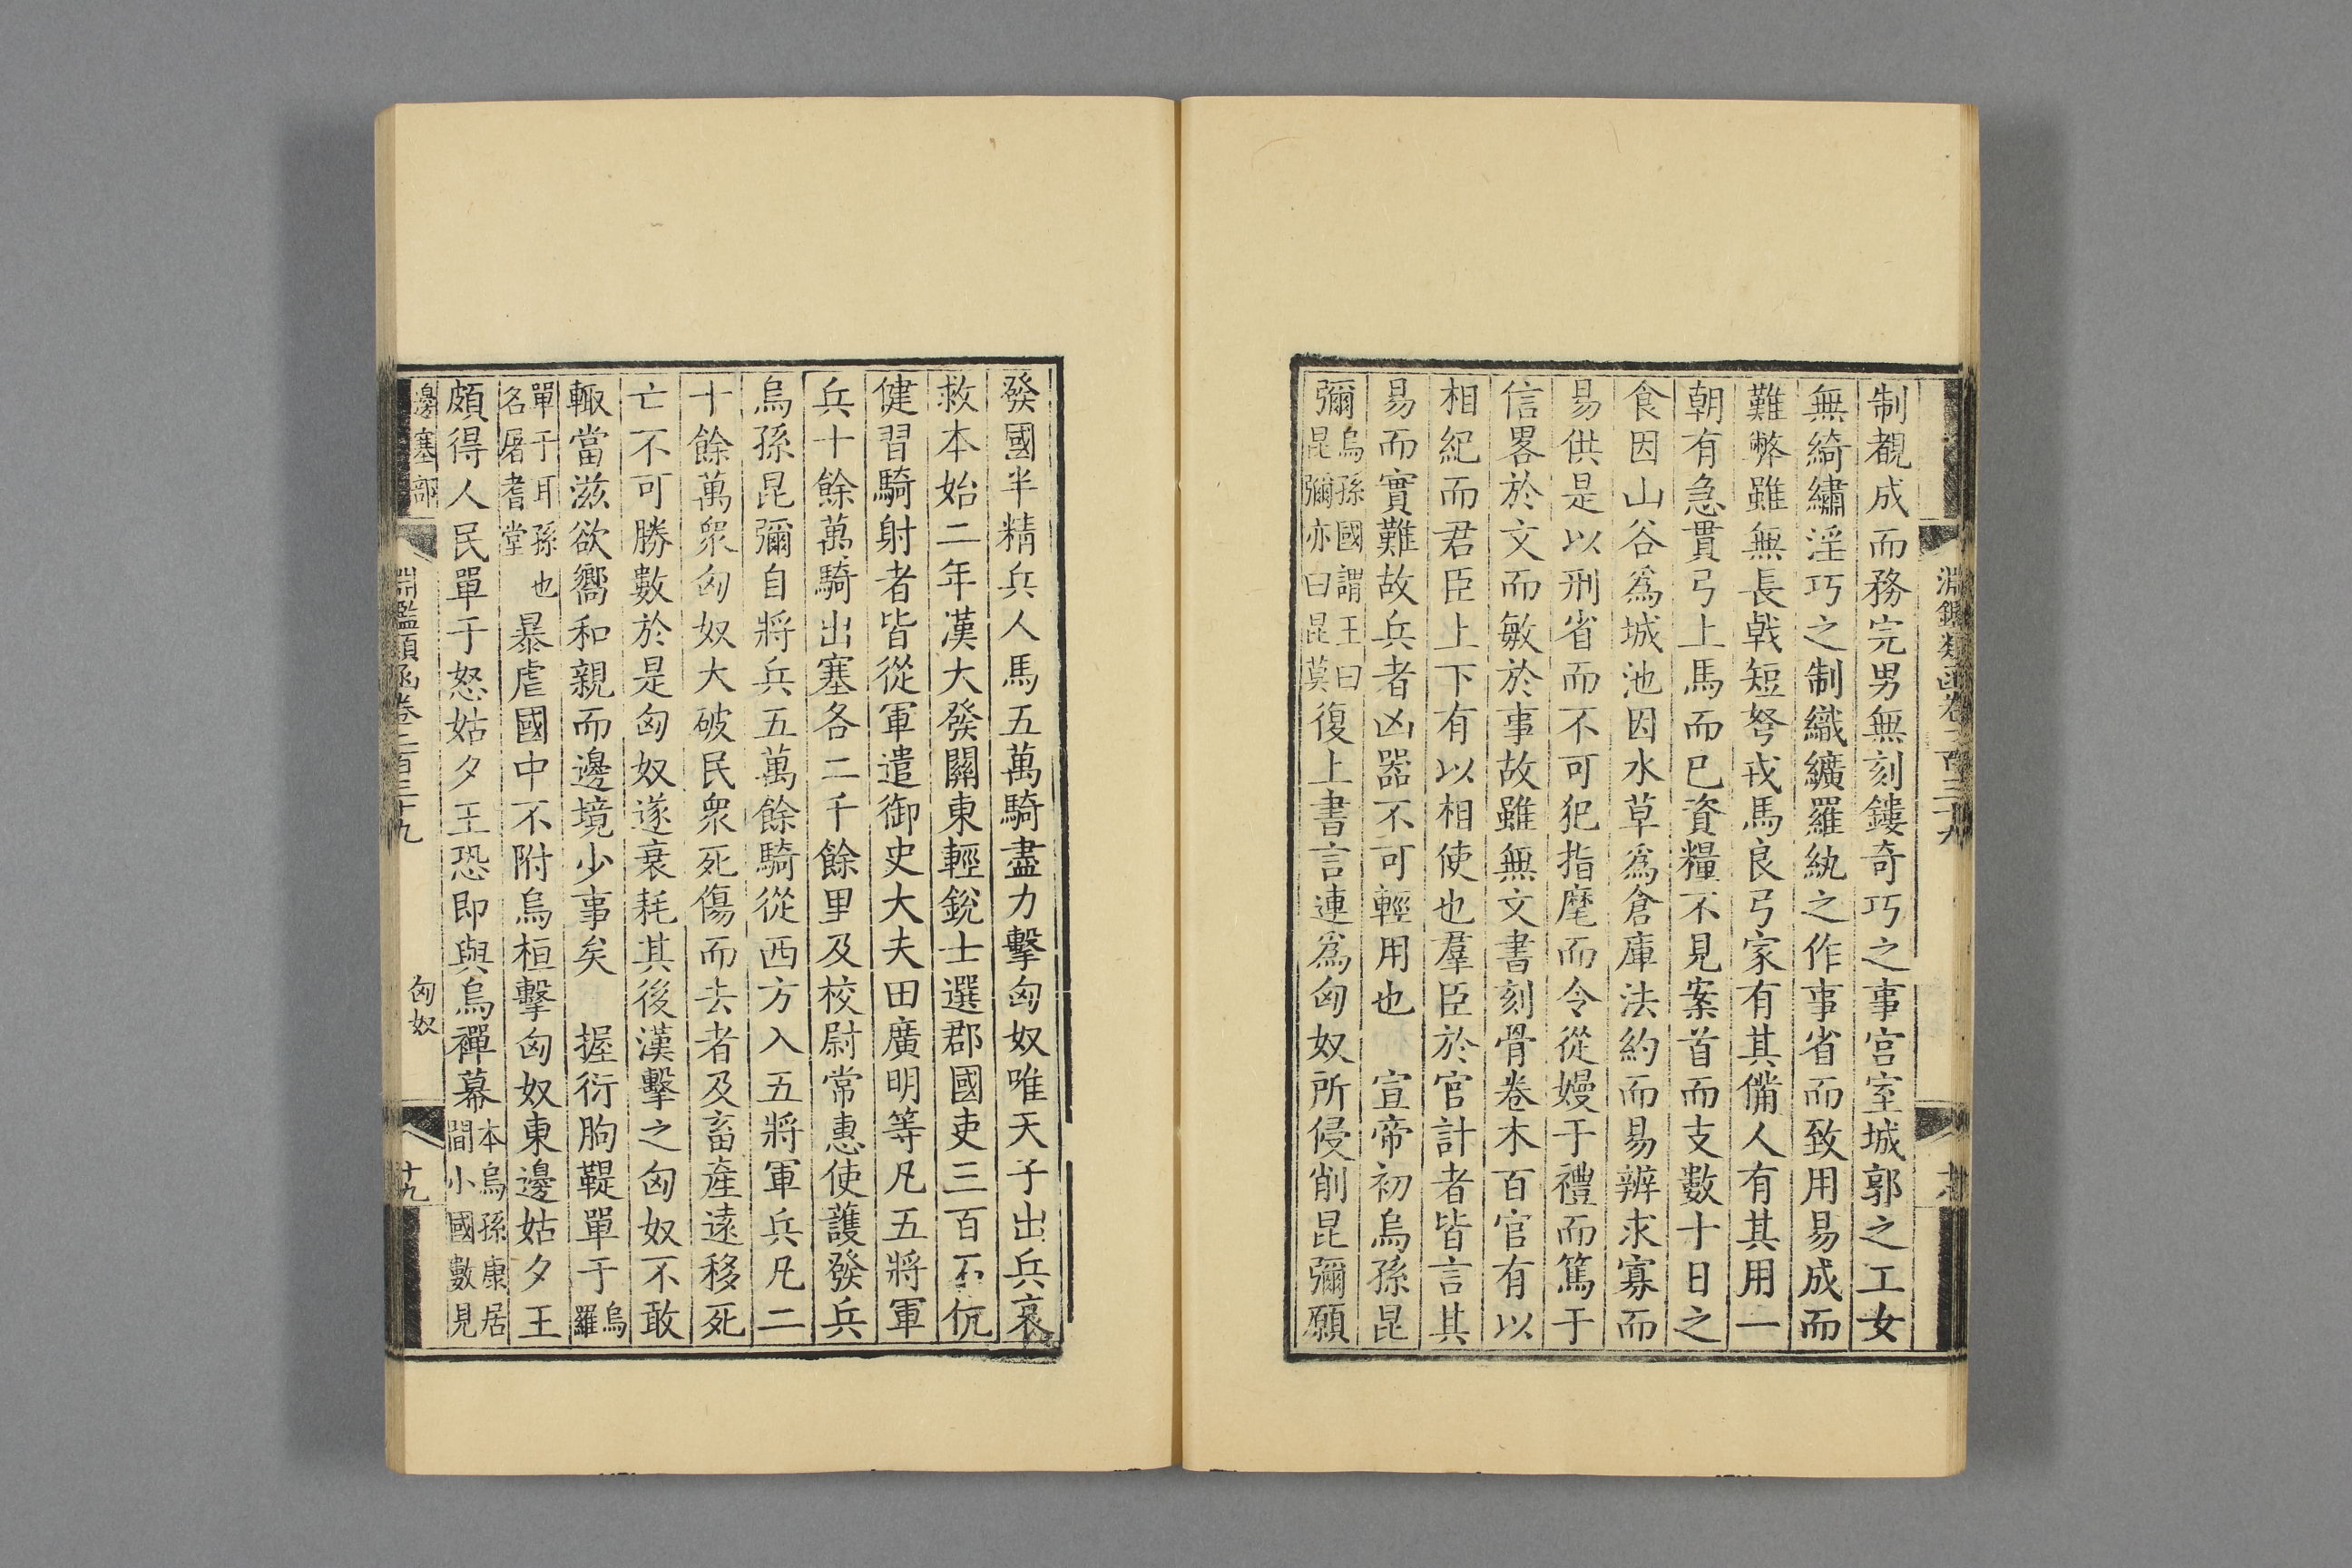 制覩成而務完男無刻鏤奇巧之事宫室城郭之工女
無綺繡淫巧之制織纊羅紈之作事省而致用易成而
難弊雖無長戟短弩戎馬良弓家有其備人有其用一
朝有急貫弓上馬而已資糧不見案首而支數十日之
食因山谷爲城池因水草爲倉庫法約而易辨求寡而
易供是以刑省而不可犯指麾而令從嫚于禮而篤于
信畧於文而敏於事故雖無文書刻骨卷木百官有以
相紀而君臣上下有以相使也羣臣於官計者皆言其
易而實難故兵者凶器不可輕用也　宣帝初烏孫昆
彌烏孫國謂王曰昆彌亦曰昆莫復上書言連爲匈奴所侵削昆彌願
發國半精兵人馬五萬騎盡力擊匈奴唯天子出兵哀
救本始二年漢大發關東輕銳士選郡國吏三百石伉
健習騎射者皆從軍遣御史大夫田廣明等凡五將軍
兵十餘萬騎出塞各二千餘里及校尉常惠使護發兵
烏孫昆彌自將兵五萬餘騎從西方入五將軍兵凡二
十餘萬衆匈奴大破民衆死傷而去者及畜産遠移死
亡不可勝數於是匈奴遂衰耗其後漢擊之匈奴不敢
輙當滋欲嚮和親而邊境少事矣　握衍朐鞮單于烏羅
單于耳孫也名屠耆堂暴虐國中不附烏桓擊匈奴東邊姑夕王
頗得人民單于怒姑夕王恐即與烏禪幕本烏孫康居間小國數見
邊塞部　淵鑑類函卷二百三十九　匈奴　十九